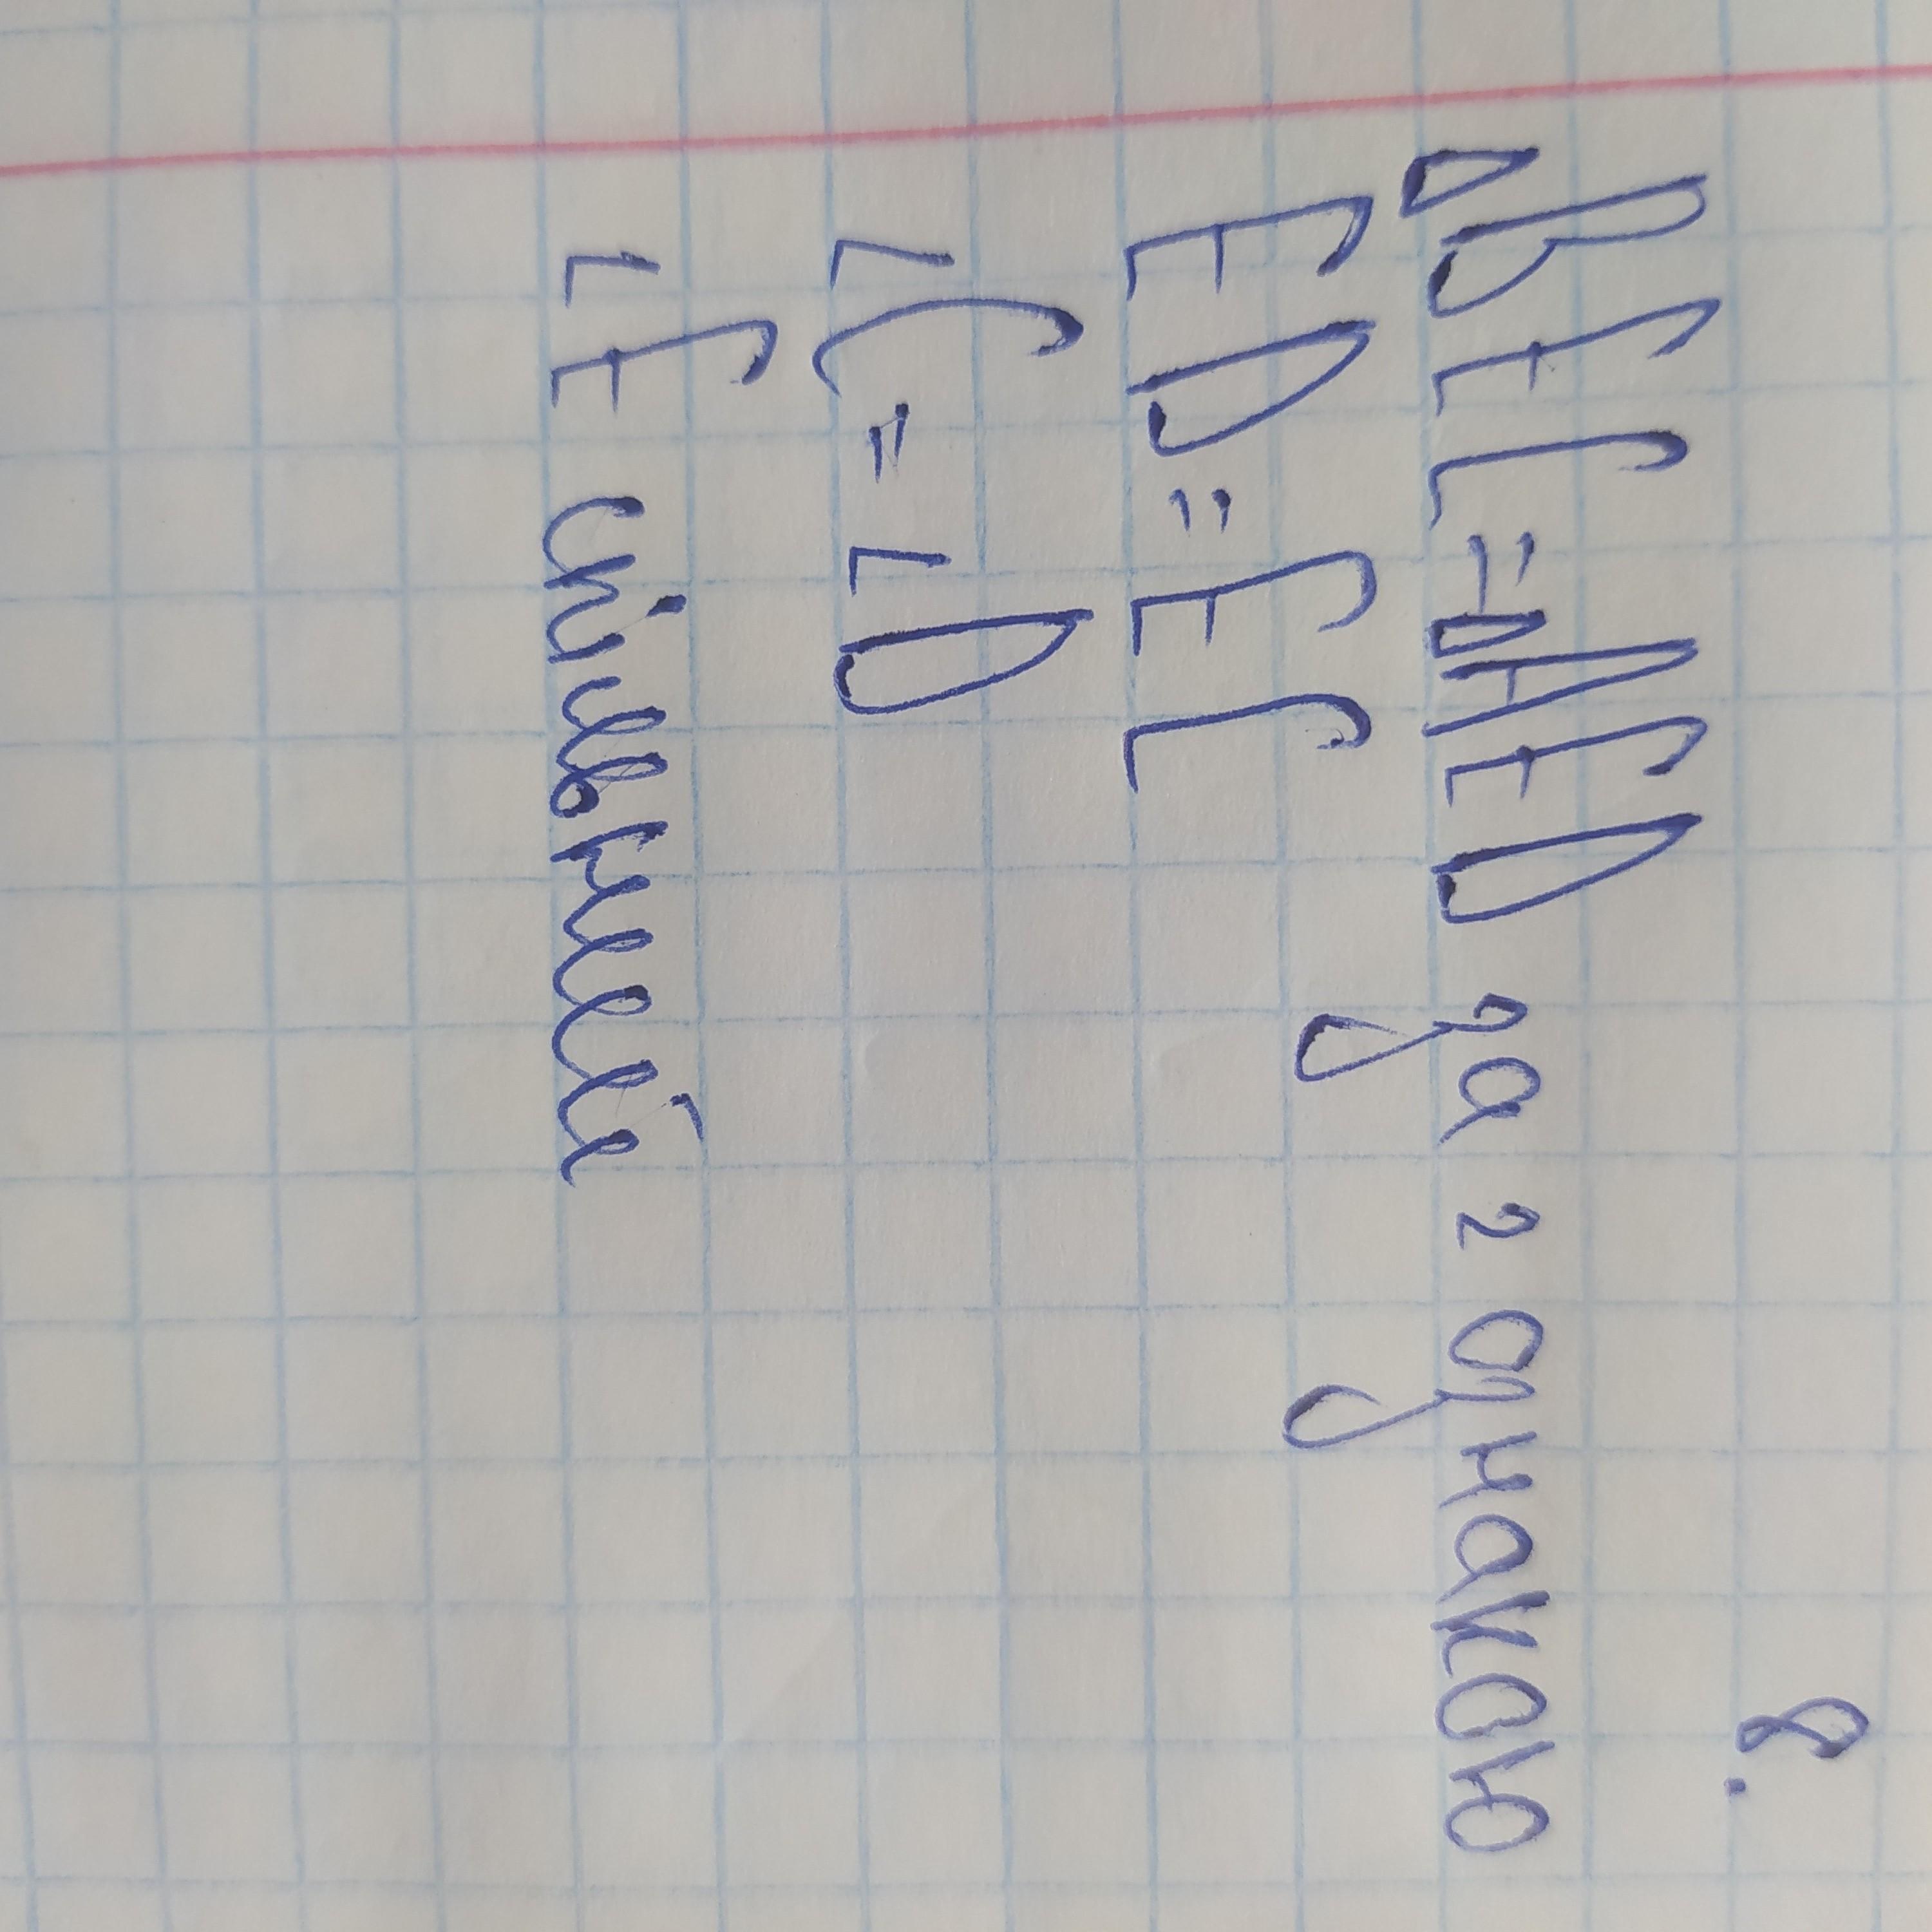 8.
△BEC=△AED за 2 ознакою
ED=EC
∠C=∠D
∠E спільний